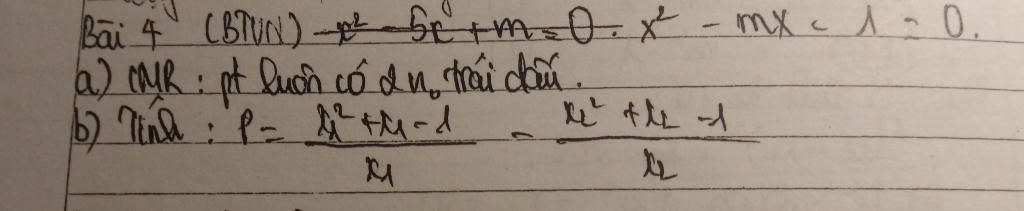 Bài 4 (BTVN) x² - 5x + m = 0. x² - mx - 1 = 0.
a) CMR : pt luôn có 2 n₀ trái dấu.
b) Tính : P = (x₁² + x₁ - 1)/x₁ - (x₂² + x₂ - 1)/x₂